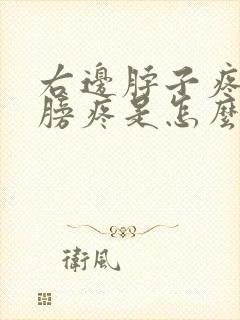 右邊脖子疼
膀疼是怎麼
衛風